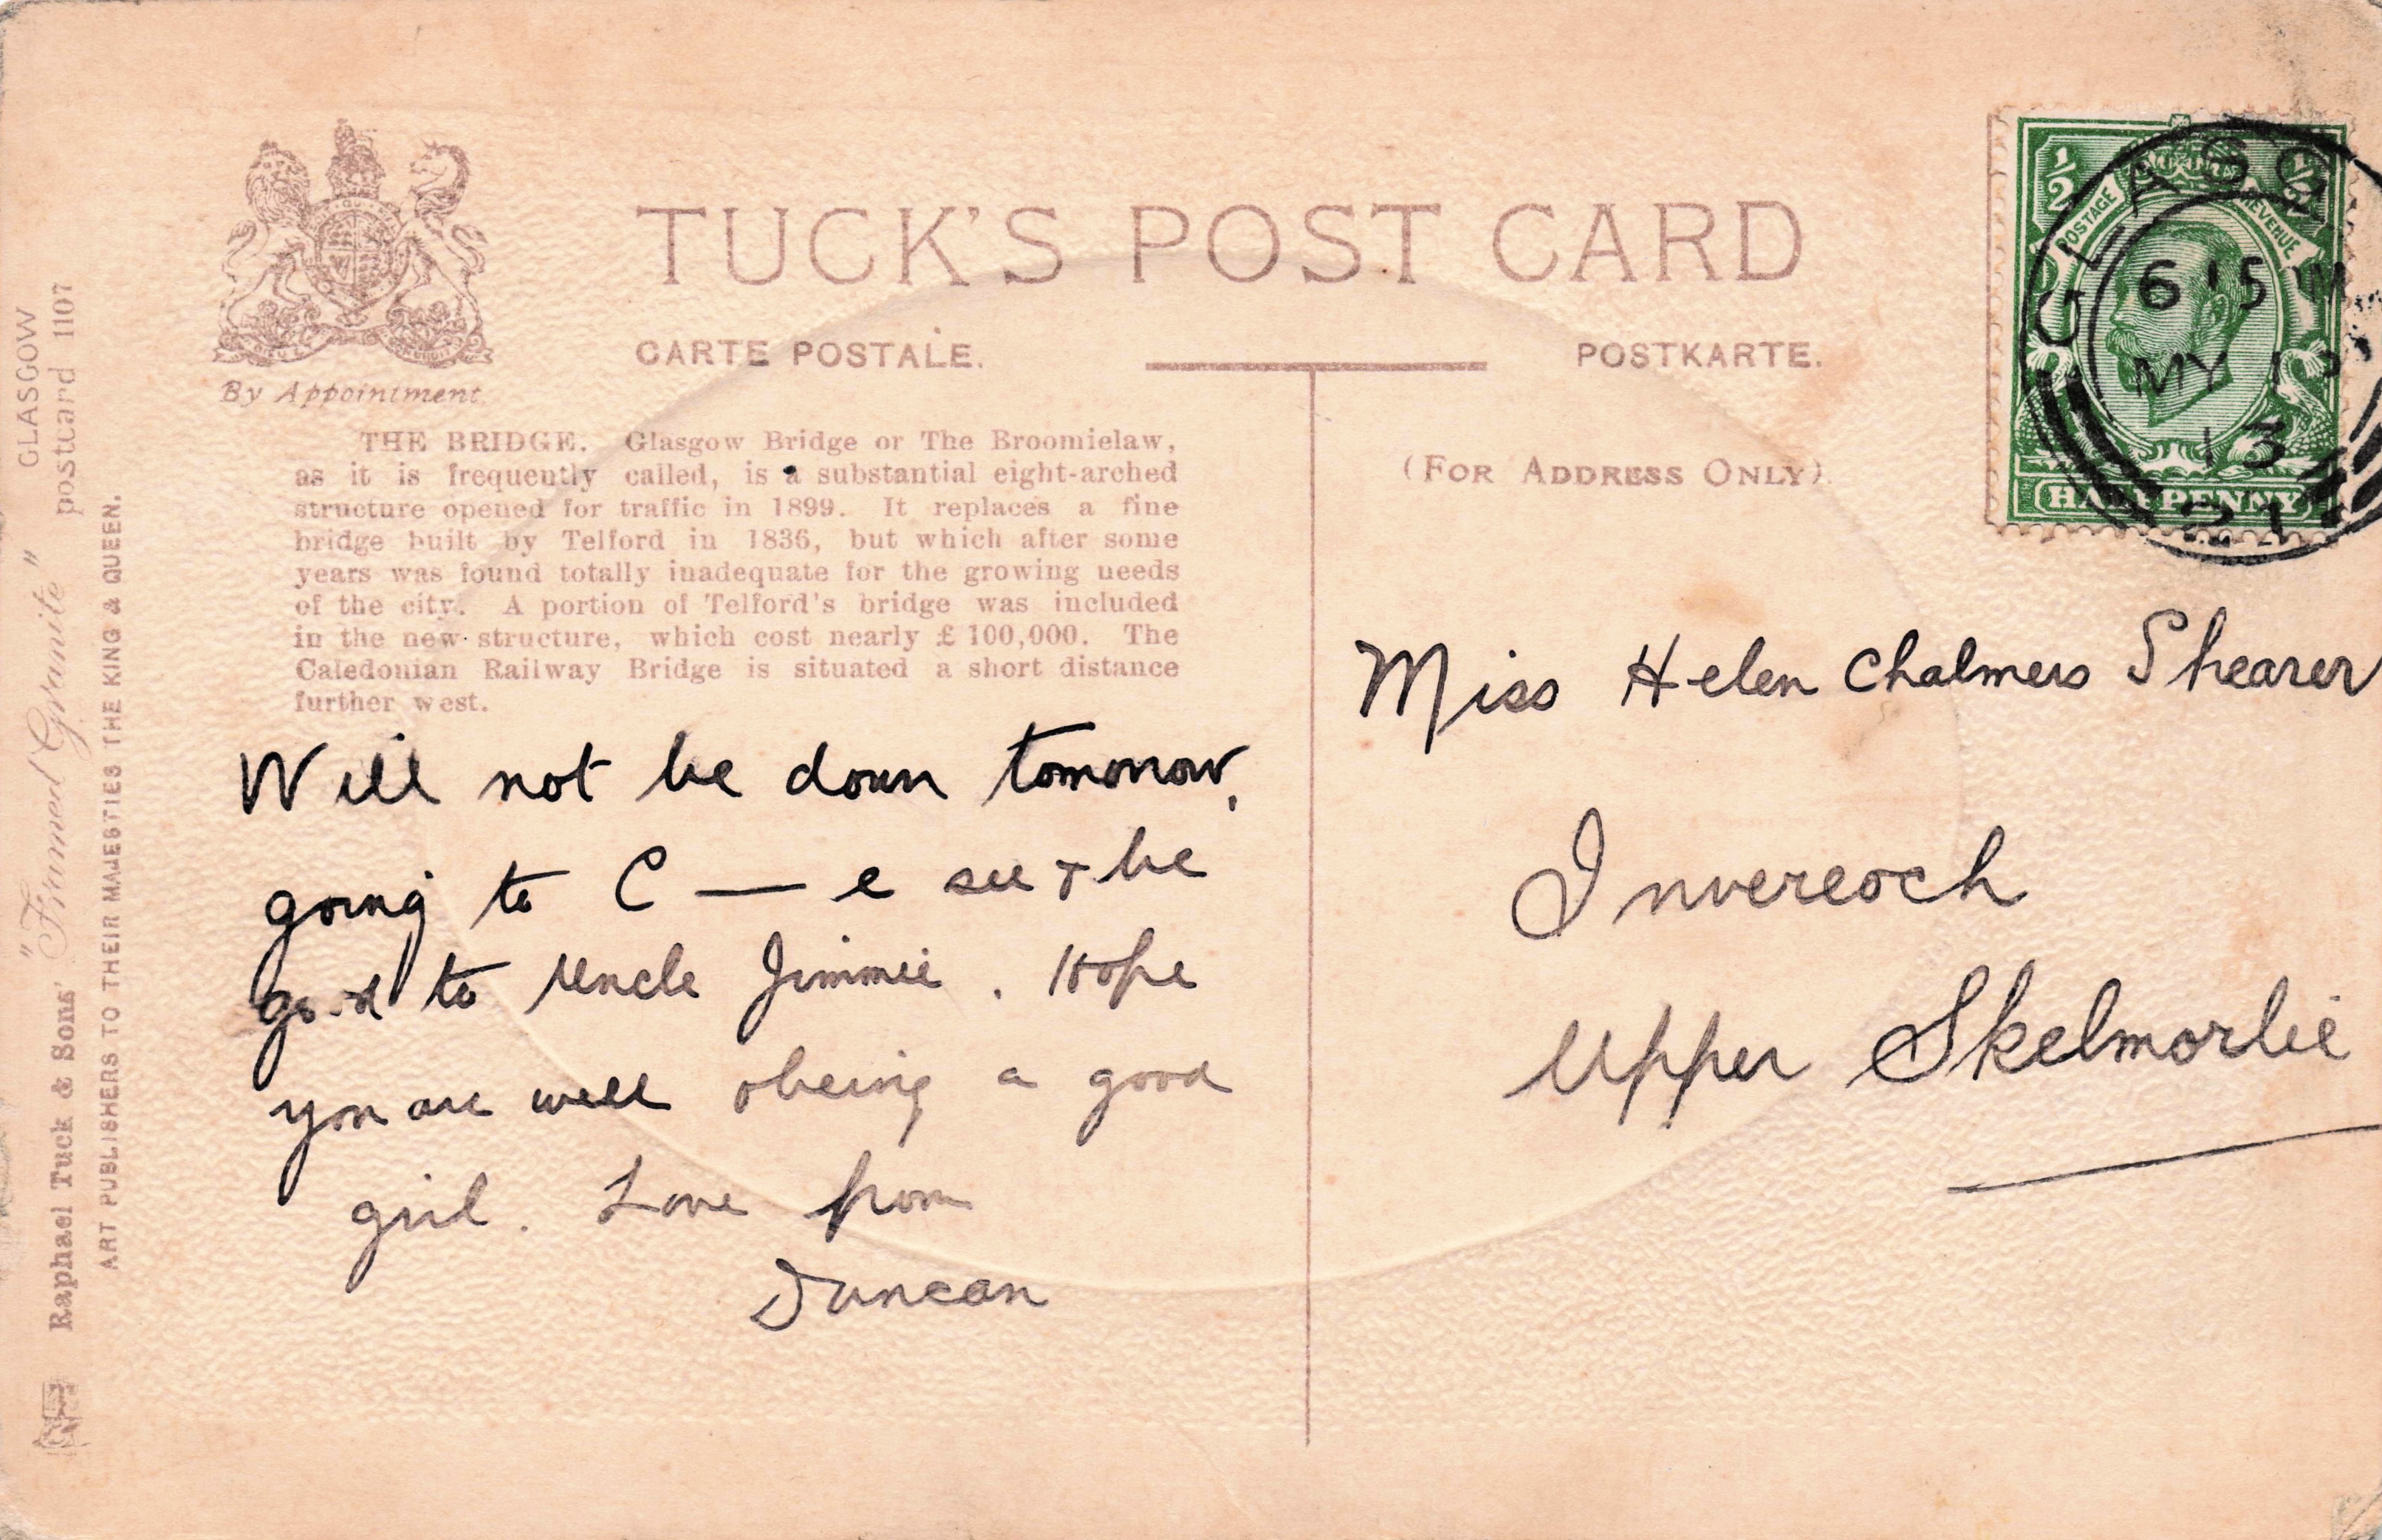 TUCK'S POST CARD
CARTE POSTALE.
POSTKARTE.
By Appointment.
THE BRIDGE. Glasgow Bridge or The Broomielaw,
as it is frequently called, is a substantial eight-arched
structure opened for traffic in 1899. It replaces a fine
bridge built by Telford in 1836, but which after some
years was found totally inadequate for the growing needs
of the city. A portion of Telford's bridge was included
in the new structure, which cost nearly £100,000. The
Caledonian Railway Bridge is situated a short distance
further west.
Will not be down tomorrow,
going to C — e see + be
good to Uncle Jimmie. Hope
you are well & being a good
girl. Love from
Duncan
(FOR ADDRESS ONLY)
Miss Helen Chalmers Shearer
Invereoch
Upper Skelmorlie
½ ½
POSTAGE REVENUE
HALFPENNY
GLASG
6 15 M
MY
13
21
Raphael Tuck & Sons' "Framed Granite" postcard 1107
GLASGOW
ART PUBLISHERS TO THEIR MAJESTIES THE KING & QUEEN.